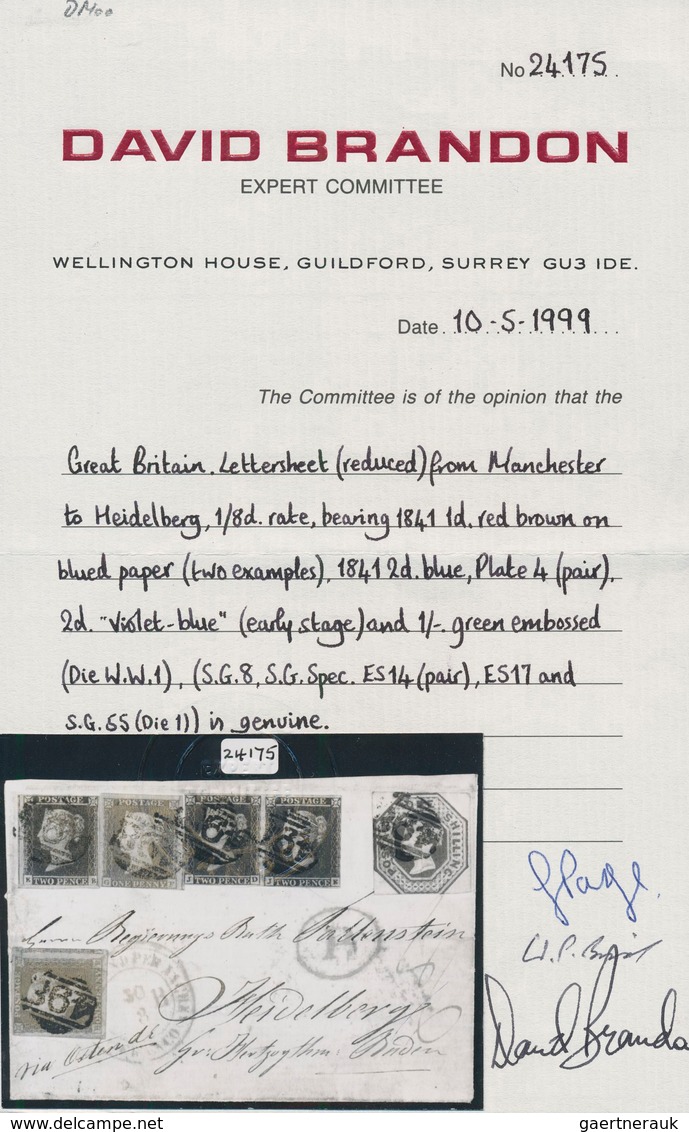 No 24175
DAVID BRANDON
EXPERT COMMITTEE
WELLINGTON HOUSE, GUILDFORD, SURREY GU3 IDE.
Date 10-5-1999
The Committee is of the opinion that the
Great Britain. Lettersheet (reduced) from Manchester
to Heidelberg, 1/8d. rate, bearing 1841 1d. red brown on
blued paper (two examples), 1841 2d. blue, Plate 4 (pair),
2d. "Violet-blue" (early stage) and 1/-. green embossed
(Die W.W.1), (S.G.8, S.G. Spec. ES14 (pair), ES17 and
S.G. 55 (Die 1)) is genuine.
24175
POSTAGE POSTAGE POSTAGE POSTAGE SHILLING
TWO PENCE ONE PENNY TWO PENCE TWO PENCE
Herrn Regierungs Rath
Heidelberg
via Ostende Baden
David Brandon
gaertnerauk